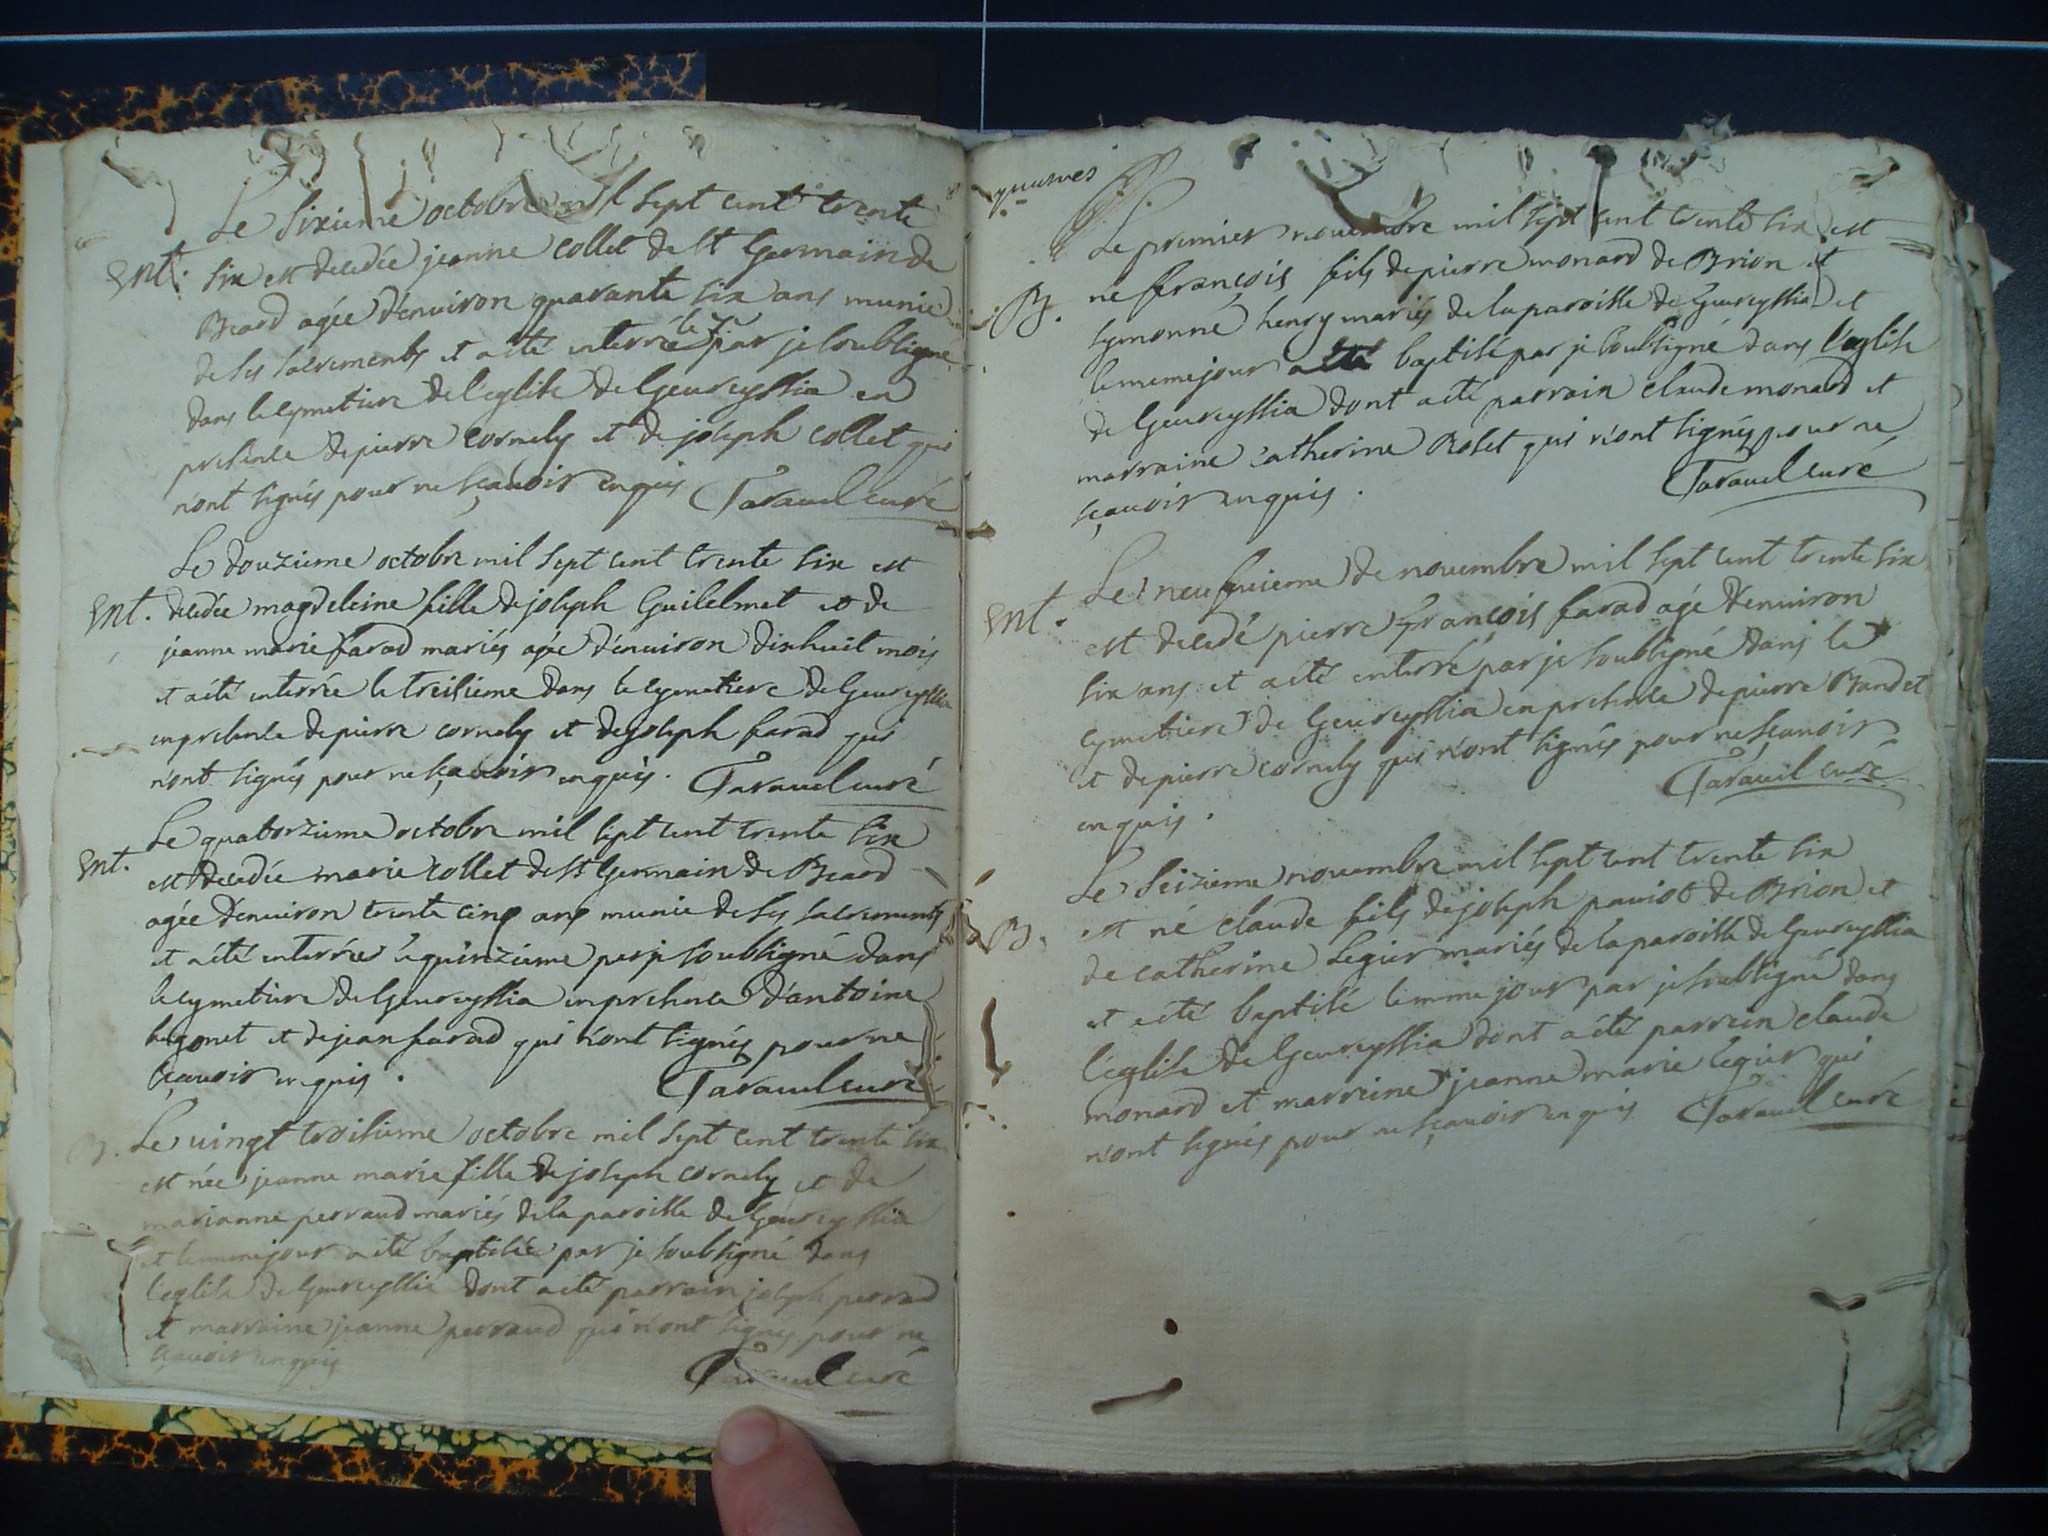 Le sixieme octobre mil sept cent trente
Ent. six est decedée jeanne collet de St Germain de
Beard agée d'enuiron quarante six ans munie
de ses sacrements et a eté enterrée le 7e par je soubsigné
dans le cymetiere de l'eglise de Geureyssia en
presence de pierre cornely et de joseph collet qui
n'ont signés pour ne sçauoir enquis Tarauel curé
Le douzieme octobre mil sept cent trente six est
Ent. decedée magdeleine fille de joseph Guilelmet et de
jeanne marie farad mariés agée d'enuiron dixhuit mois
et a eté enterrée le treisieme dans le cymetiere de Geureyssia
en presence de pierre cornely et de joseph farad qui
n'ont signés pour ne sçauoir enquis. Tarauel curé
Le quatorzieme octobre mil sept cent trente six
Ent. est decedée marie collet de St Germain de Beard
agée d'enuiron trente cinq ans munie de ses sacrements
et a eté enterrée le quinzieme par je soubsigné dans
le cymetiere de Geureyssia en presence d'antoine
hugonet et de jean farad qui n'ont signés pour ne
sçauoir enquis. Tarauel curé
B. Le uingt troisieme octobre mil sept cent trente six
est née jeanne marie fille de joseph cornely et de
marianne perraud mariés de la paroisse de Geureyssia
et le meme jour a eté baptisée par je soubsigné dans
l'eglise de Geureyssia dont a eté parrain joseph perrad
et marraine jeanne perraud qui n'ont signés pour ne
sçauoir enquis
Tarauel curé
Le premier nouembre mil sept cent trente six est
B. né francois fils de pierre monard de Brion et
symonne henry mariés de la paroisse de Geureyssia et
le meme jour a eté baptisé par je soubsigné dans l'eglise
de Geureyssia dont a eté parrain claude monard et
marraine catherine Rolet qui n'ont signés pour ne
sçauoir enquis. Tarauel curé
Le neufuieme de nouembre mil sept cent trente six
Ent. est decedé pierre francois farad agé d'enuiron
six ans et a eté enterré par je soubsigné dans le
cymetiere de Geureyssia en presence de pierre Bandet
et de pierre cornely qui n'ont signés pour ne sçauoir
enquis. Tarauel curé
Le seizieme nouembre mil sept cent trente six
B. est né claude fils de joseph pauiot de Brion et
de catherine Legier mariés de la paroisse de Geureyssia
et a eté baptisé le meme jour par je soubsigné dans
l'eglise de Geureyssia dont a eté parrein claude
monard et marreine jeanne marie legier qui
n'ont signés pour ne sçauoir enquis Tarauel curé